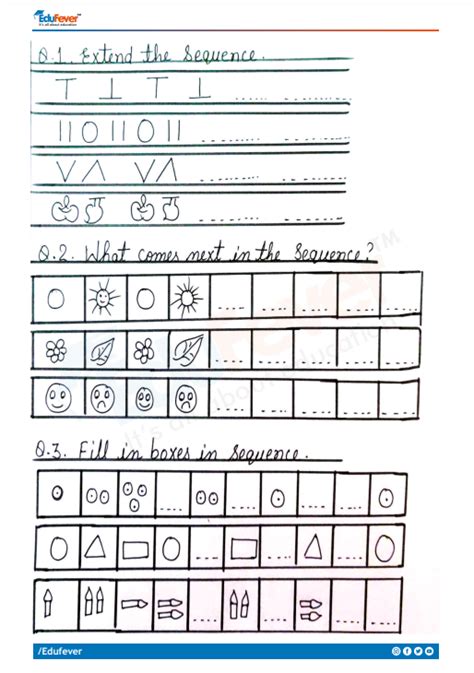 EduFever™
It's all about education
Q.1. Extend the Sequence.
Q.2. What comes next in the Sequence?
EduFever™
It's all about education
Q.3. Fill in boxes in Sequence.
/Edufever